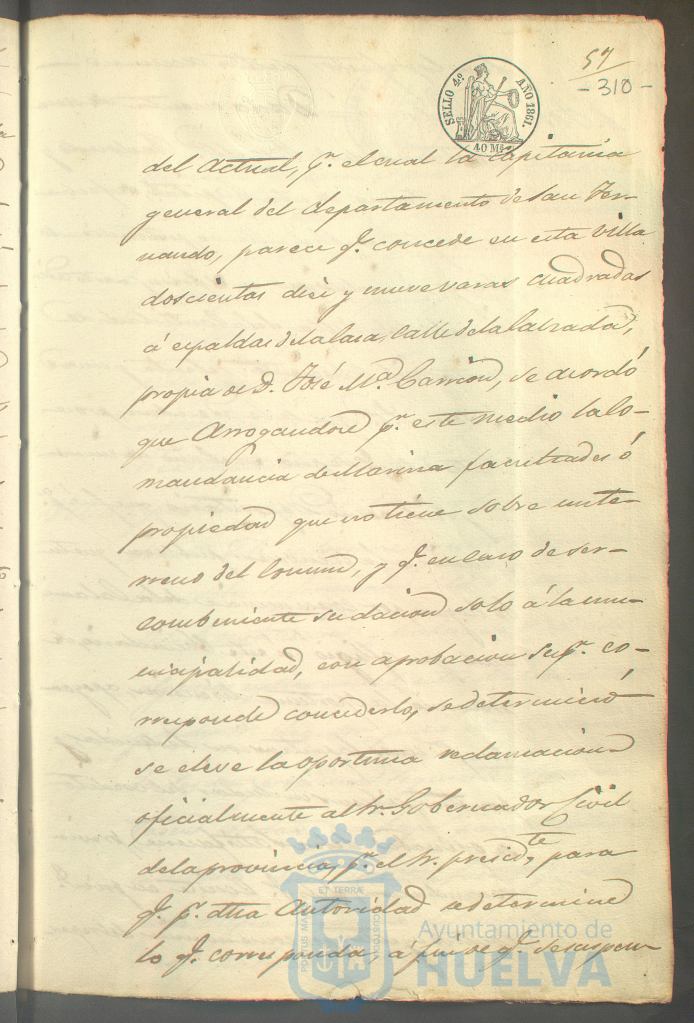 57
- 310 -
SELLO 4º. AÑO 1861.
40 Ms.
del actual, pr. el cual la Capitania
general del departamento de San Fer-
nando, parece qe. concede en esta Villa
doscientas diez y nueve varas cuadradas
á espaldas de la casa, calle de la
propia de D. José Ma. Carrion, se acordó
que Arrogandose pr. este medio la Co-
mandancia de Marina facultades ó
propiedad que no tiene sobre un te-
rreno del Comun, y qe. en caso de ser
combeniente su dacion solo á la mu-
nicipalidad, con aprobacion Supr. co-
rresponde concederlo, se determinó
se eleve la oportuna reclamacion
oficialmente al Sr. Gobernador Civil
de la provincia, pr. el Sr. presidte. para
qe. pr. dha Autoridad se determine
lo qe. corresponda, á fin de qe. se suspen-
PORTUS MARIS ET TERRAE CUSTODIA
Ayuntamiento de
HUELVA